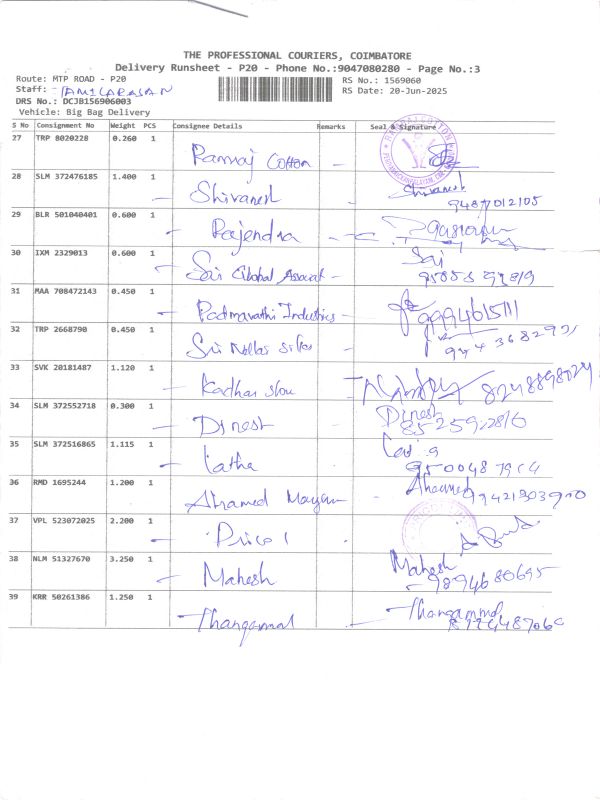 THE PROFESSIONAL COURIERS, COIMBATORE
Delivery Runsheet - P20 - Phone No.:9047080280 - Page No.:3
Route: MTP ROAD - P20
RS No.: 1569060
Staff: TAMILARASAN
RS Date: 20-Jun-2025
DRS No.: DCJB156906003
Vehicle: Big Bag Delivery
S No Consignment No Weight PCS Consignee Details Remarks Seal & Signature
27 TRP 8020228 0.260 1
Ramraj Cotton -
28 SLM 372476185 1.400 1
- Shivanesh Shivanesh
9487012105
29 BLR 501040401 0.600 1
- Rajendra -
30 IXM 2329013 0.600 1 Sai
- Sai Global -
31 MAA 708472143 0.450 1
- Padmavathi Industries - 9994615111
32 TRP 2668790 0.450 1
- Sri Nellai silks
33 SVK 20181487 1.120 1
- Kadhar 8248898024
34 SLM 372552718 0.300 1 Dinesh
- Dinesh
35 SLM 372516865 1.115 1
- Latha
36 RMD 1695244 1.200 1
- Ahamed
37 VPL 523072025 2.200 1
- Pricol
38 NLM 51327670 3.250 1 Mahesh
- Mahesh - 9894680695
39 KRR 50261386 1.250 1
- Thangammal - Thangammal